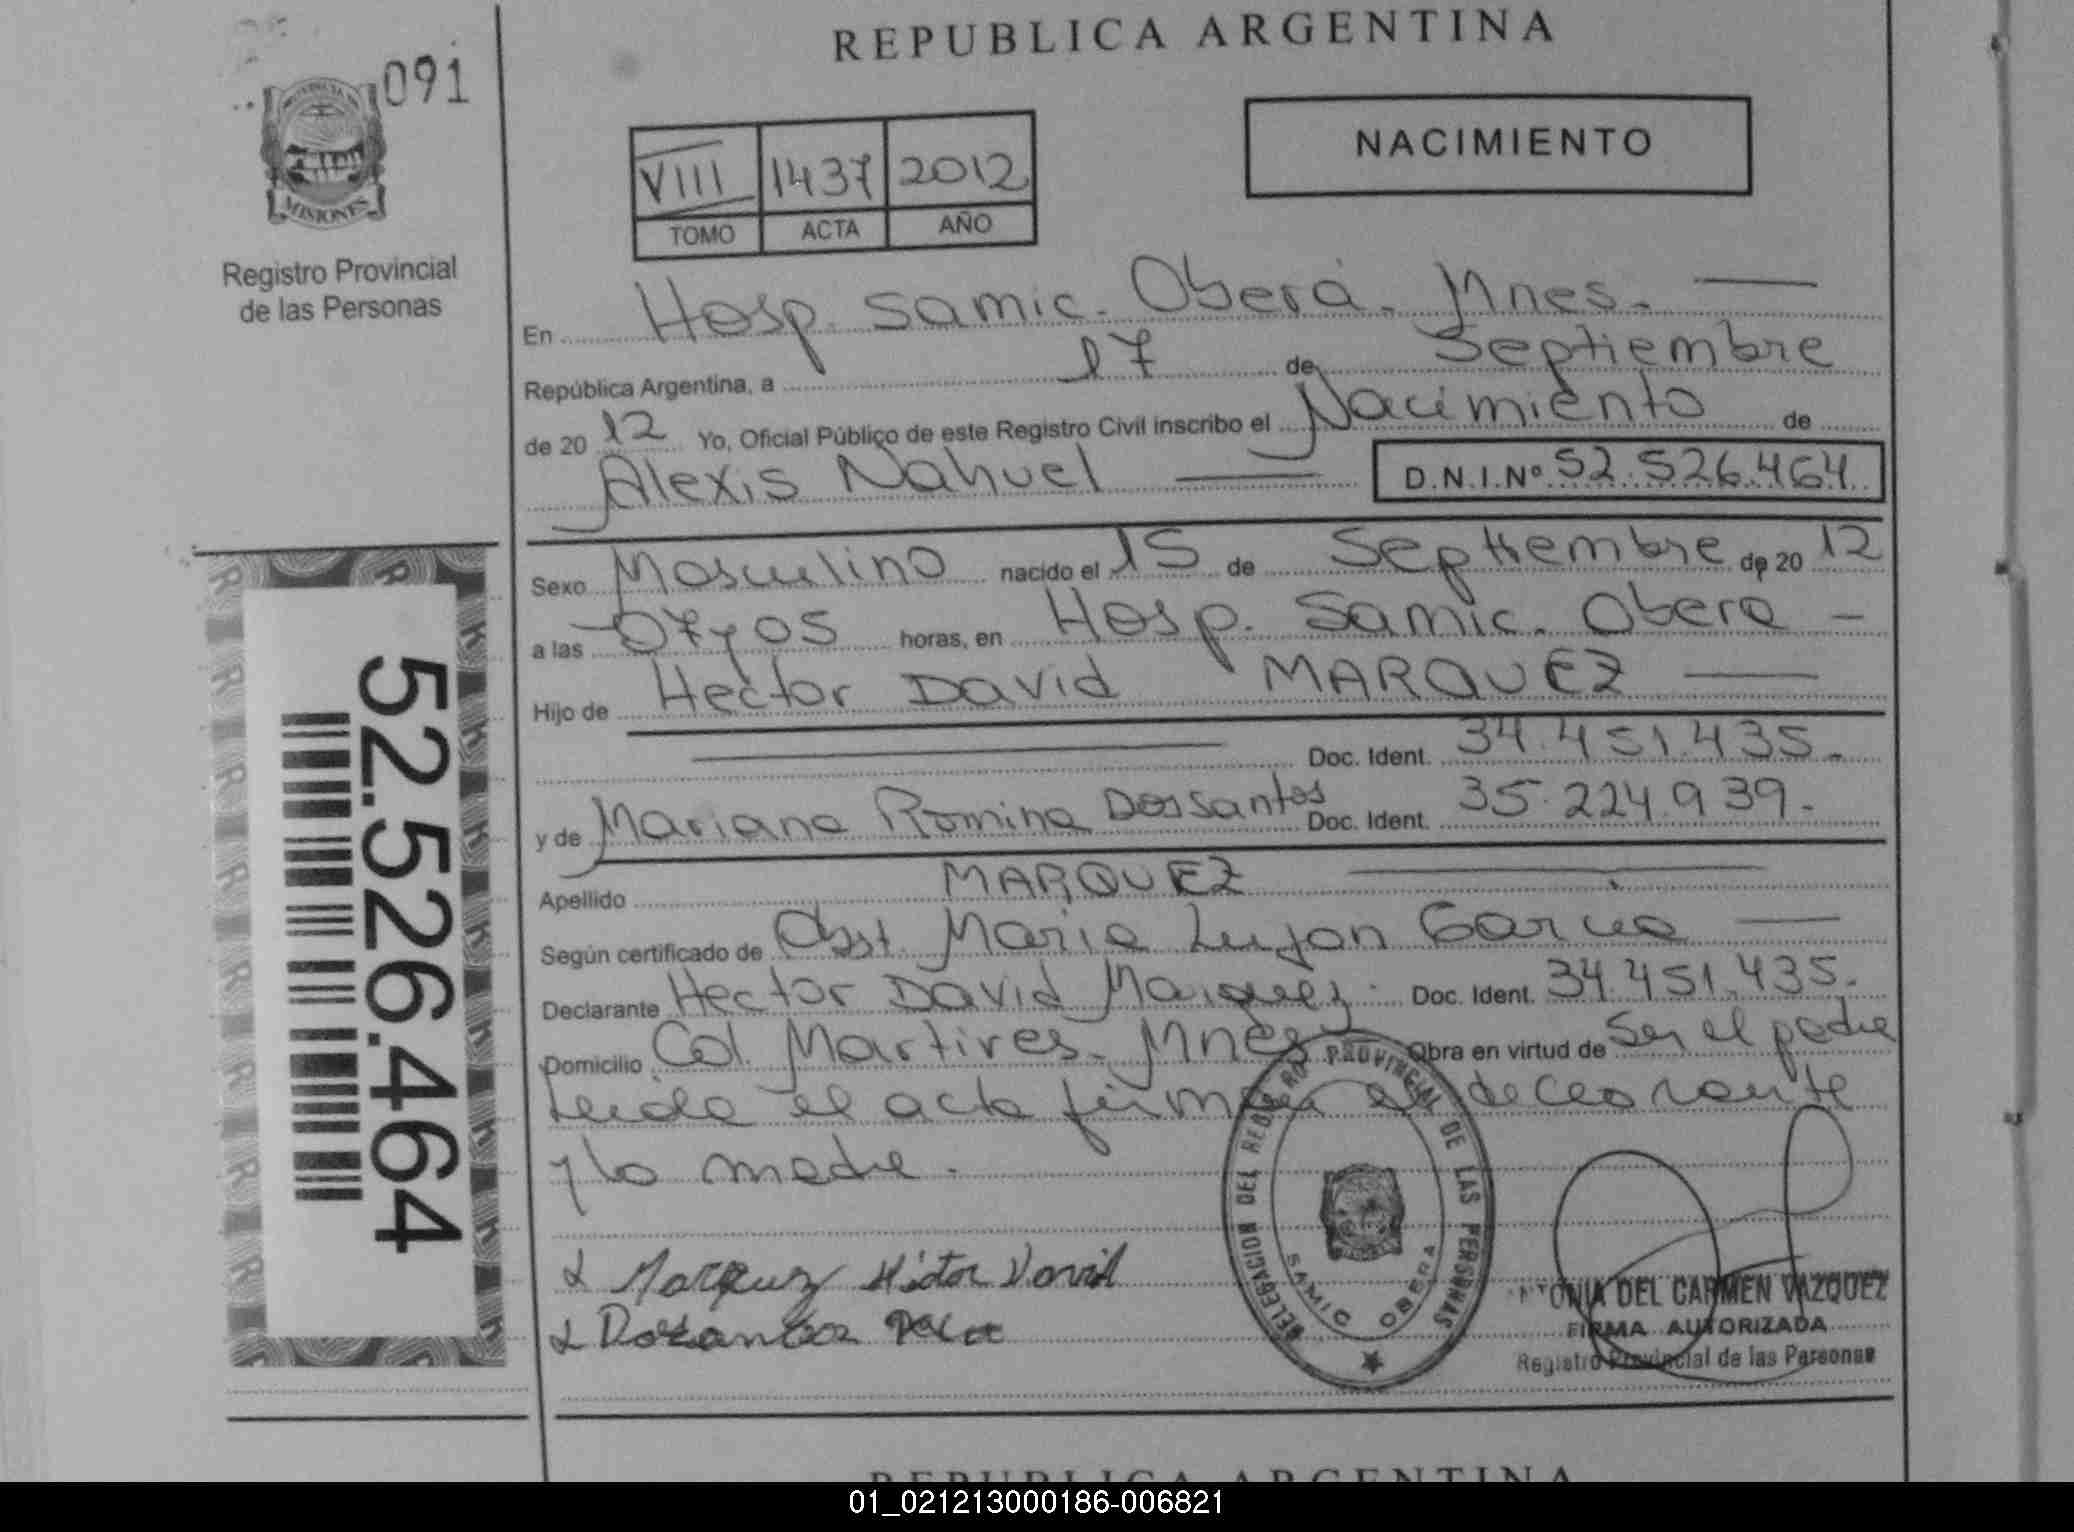 REPUBLICA ARGENTINA
091
MISIONES
Registro Provincial
de las Personas
VIII 1437 2012
TOMO ACTA AÑO
NACIMIENTO
En Hosp. Samic. Oberá. Mnes.
República Argentina, a 17 de Septiembre
de 20 12 Yo, Oficial Público de este Registro Civil inscribo el Nacimiento de
Alexis Nahuel D.N.I.Nº 52.526.464
Sexo Masculino nacido el 15 de Septiembre de 20 12
a las 07y05 horas, en Hosp. Samic. Obera
Hijo de Hector David MARQUEZ
Doc. Ident. 34.451.435.
y de Mariana Romina Dossantos Doc. Ident. 35.224.939.
Apellido MARQUEZ
Según certificado de Obst. Maria Lujan Garcia
Declarante Hector David Marquez. Doc. Ident. 34.451.435.
Domicilio Col. Martires. Mnes Obra en virtud de ser el padre
Leida el acta firman el declarante
y la madre.
Marquez Hector David
ANTONIA DEL CARMEN VAZQUEZ
FIRMA AUTORIZADA
Registro Provincial de las Personas
DELEGACION DEL REGISTRO PROVINCIAL DE LAS PERSONAS
SAMIC OBERA
52.526.464
REPUBLICA ARGENTINA
01_021213000186-006821